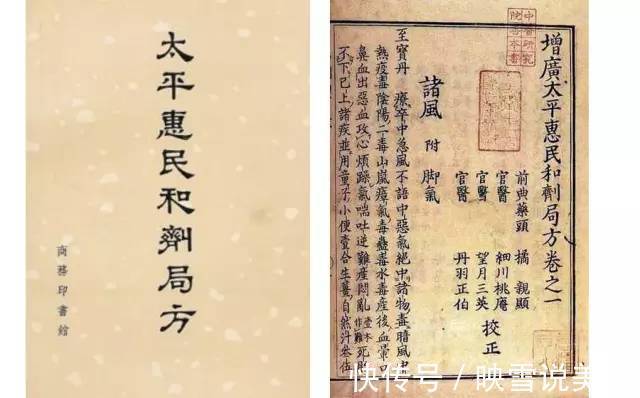 太平惠民和劑局方
商務印書館
增廣太平惠民和劑局方卷之一
前典藥頭 橘 親顯
官醫 細川桃庵
官醫 望月三英 校正
官醫 丹羽正伯
諸風 附 脚氣
至寶丹 療卒中急風不語中惡氣絕中諸物毒暗風中
熱疫毒陰陽二毒山嵐瘴氣毒蠱毒水毒產後血暈口
鼻血出惡血攻心煩躁氣喘吐逆難產悶亂死胎
不下已上諸疾並用童子小便壹合生薑自然汁參伍
快传号 / 映雪说美